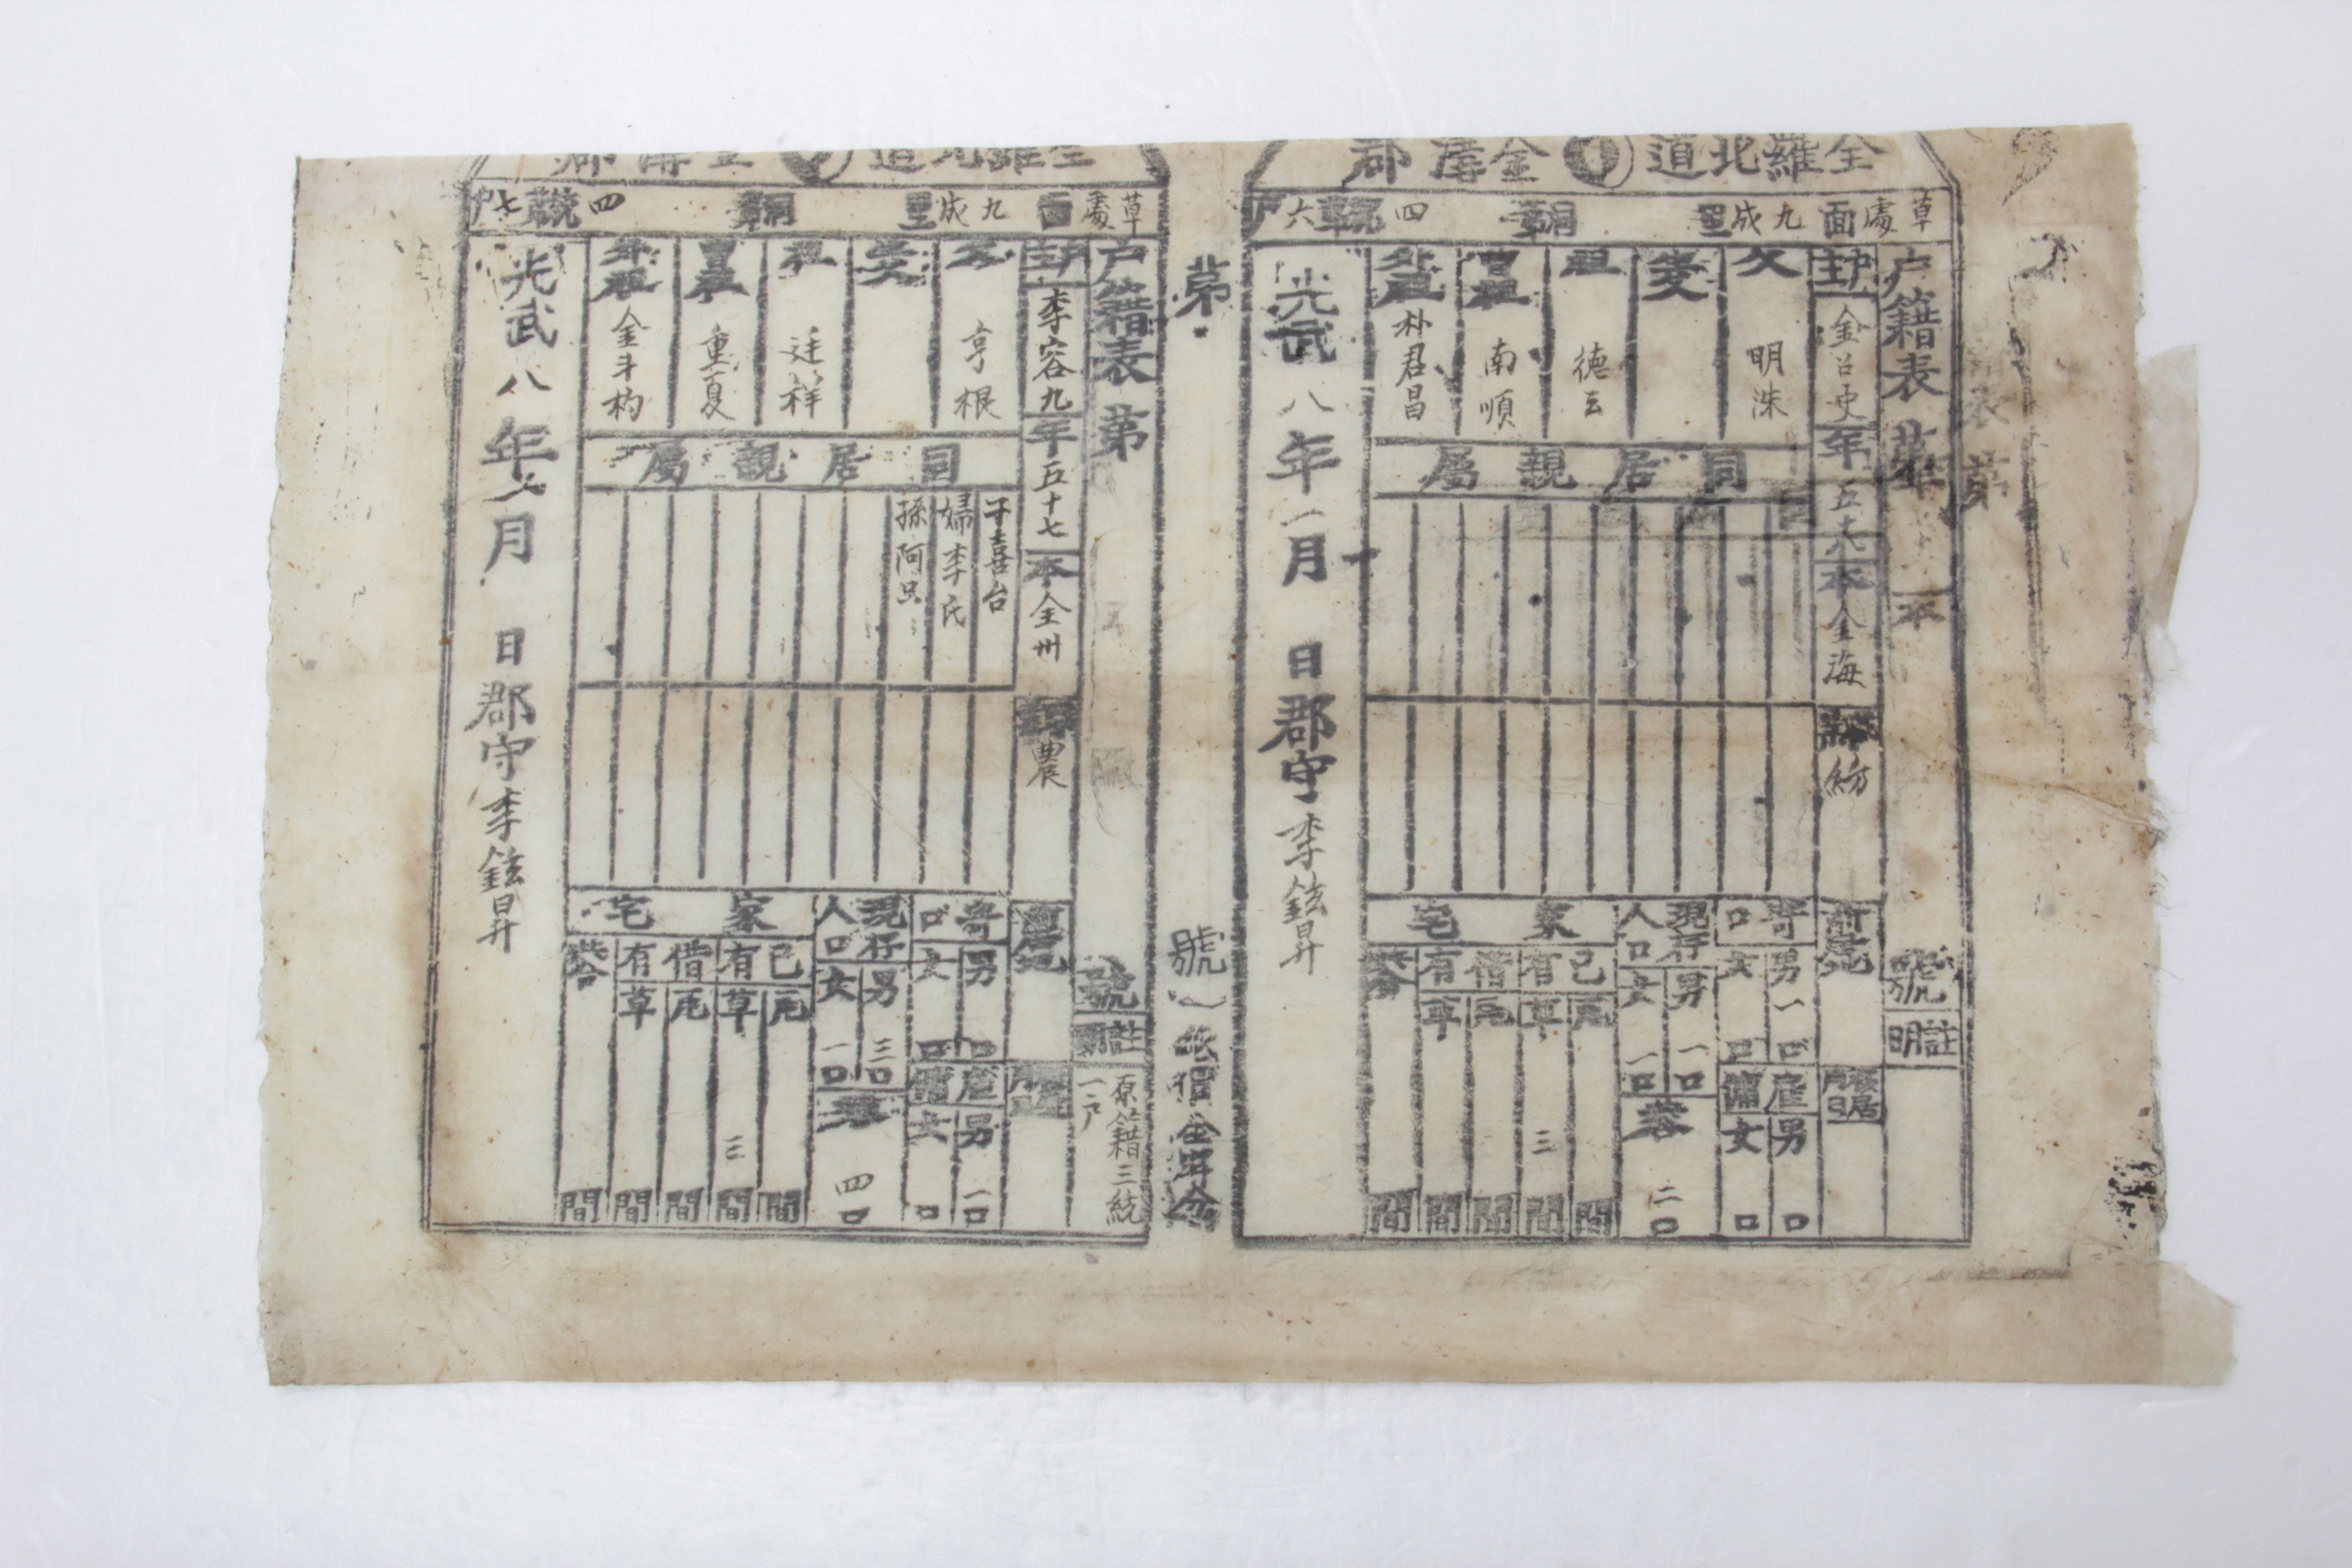 全羅北道 金溝郡
草處面 九成里 洞 四統 六戶
戶籍表 第 號
戶主 金召史 年 五十六 本 金海 職業 紡
父 明洙
生父
祖 德云
曾祖 南順
外祖 朴君昌
同居親屬
前居地
移居月日
寄口 男 一口 女 口
雇傭 男 口 女 口
現存人口 男 一口 女 一口
共合 二口
家宅 己有 瓦 間 草 三間 借有 瓦 間 草 間 共合 間
註明
光武八年一月 日 郡守 李鉉昇
第 號
全羅北道 金溝郡
草處面 九成里 洞 四統 七戶
戶籍表 第 號
戶主 李容九 年 五十七 本 全州 職業 農
父 亨根
生父
祖 廷祥
曾祖 重夏
外祖 金斗杓
同居親屬
子 喜台
婦 李氏
孫 阿只
前居地
移居月日
寄口 男 口 女 口
雇傭 男 一口 女 口
現存人口 男 三口 女 一口
共合 四口
家宅 己有 瓦 間 草 三間 借有 瓦 間 草 間 共合 間
註明
原籍三統
一戶
光武八年 月 日 郡守 李鉉昇